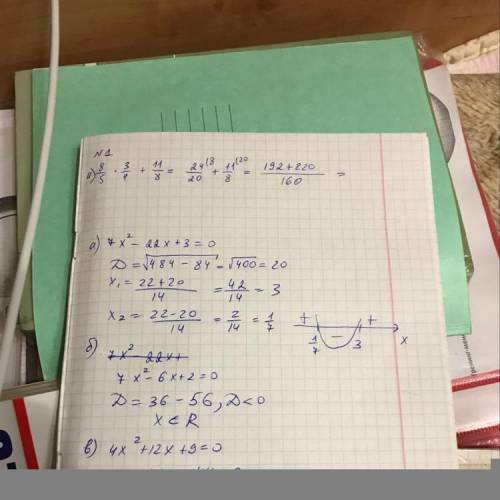 N1
а) 8/5 · 3/4 + 11/8 = 24⁽⁸/20 + 11⁽²⁰/8 = 192+220/160 =
а) 7x² - 22x + 3 = 0
D = √484 - 84 = √400 = 20
x₁ = 22+20/14 = 42/14 = 3
x₂ = 22-20/14 = 2/14 = 1/7
+ - +
1/7 3 x
б) 7x² - 22x+
7x² - 6x + 2 = 0
D = 36 - 56, D < 0
x ∈ R
в) 4x² + 12x + 9 = 0